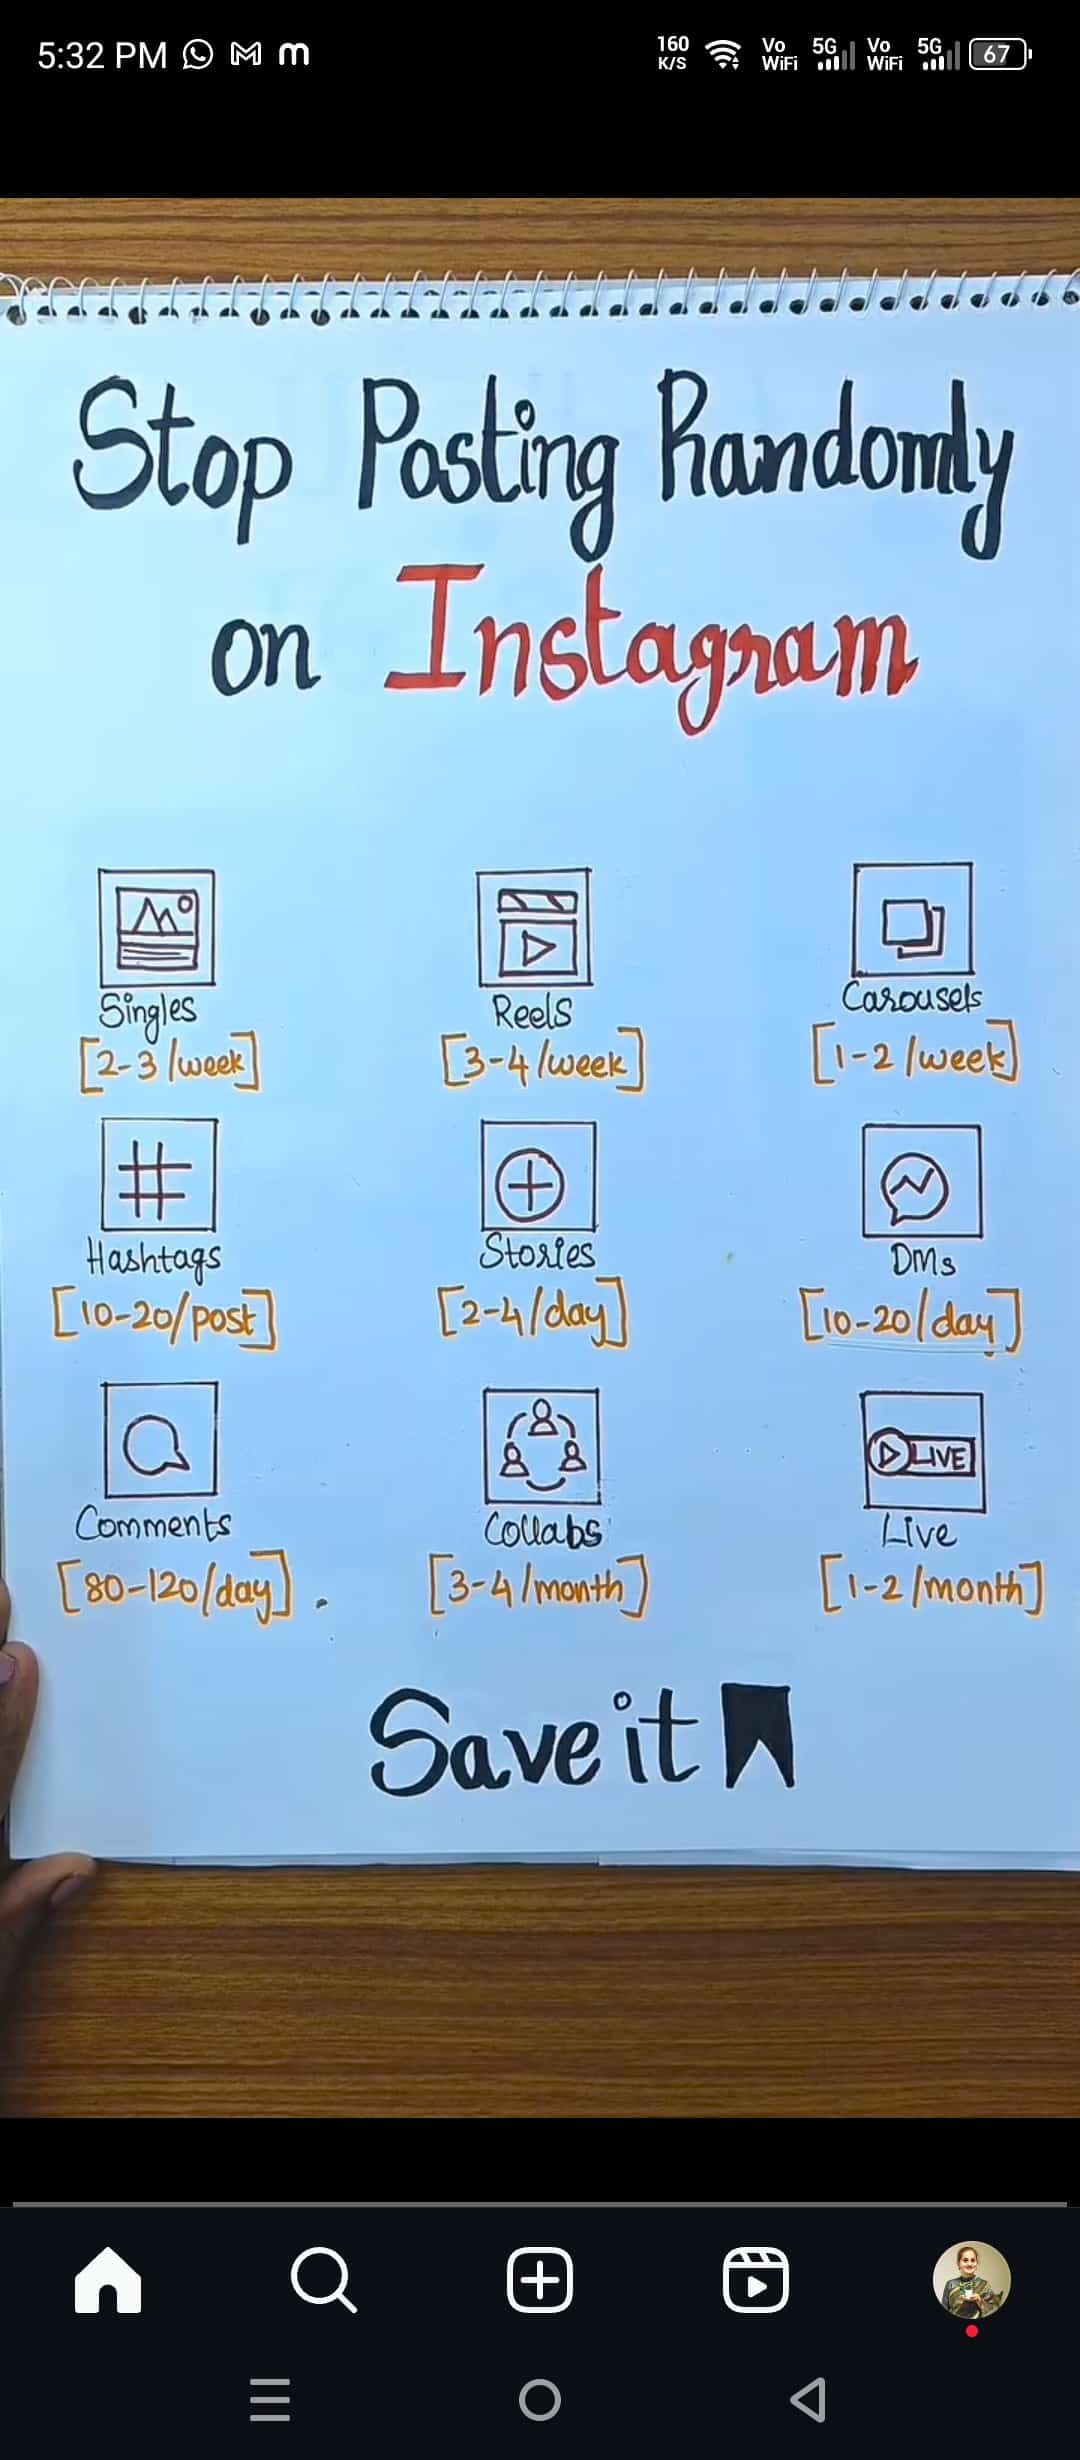 5:32 PM
160 K/S
Vo WiFi 5G Vo WiFi 5G 67
Stop Posting Randomly
on Instagram
Singles Reels Carousels
[2-3/week] [3-4/week] [1-2/week]
Hashtags Stories DMs
[10-20/post] [2-4/day] [10-20/day]
LIVE
Comments Collabs Live
[80-120/day]. [3-4/month] [1-2/month]
Save it